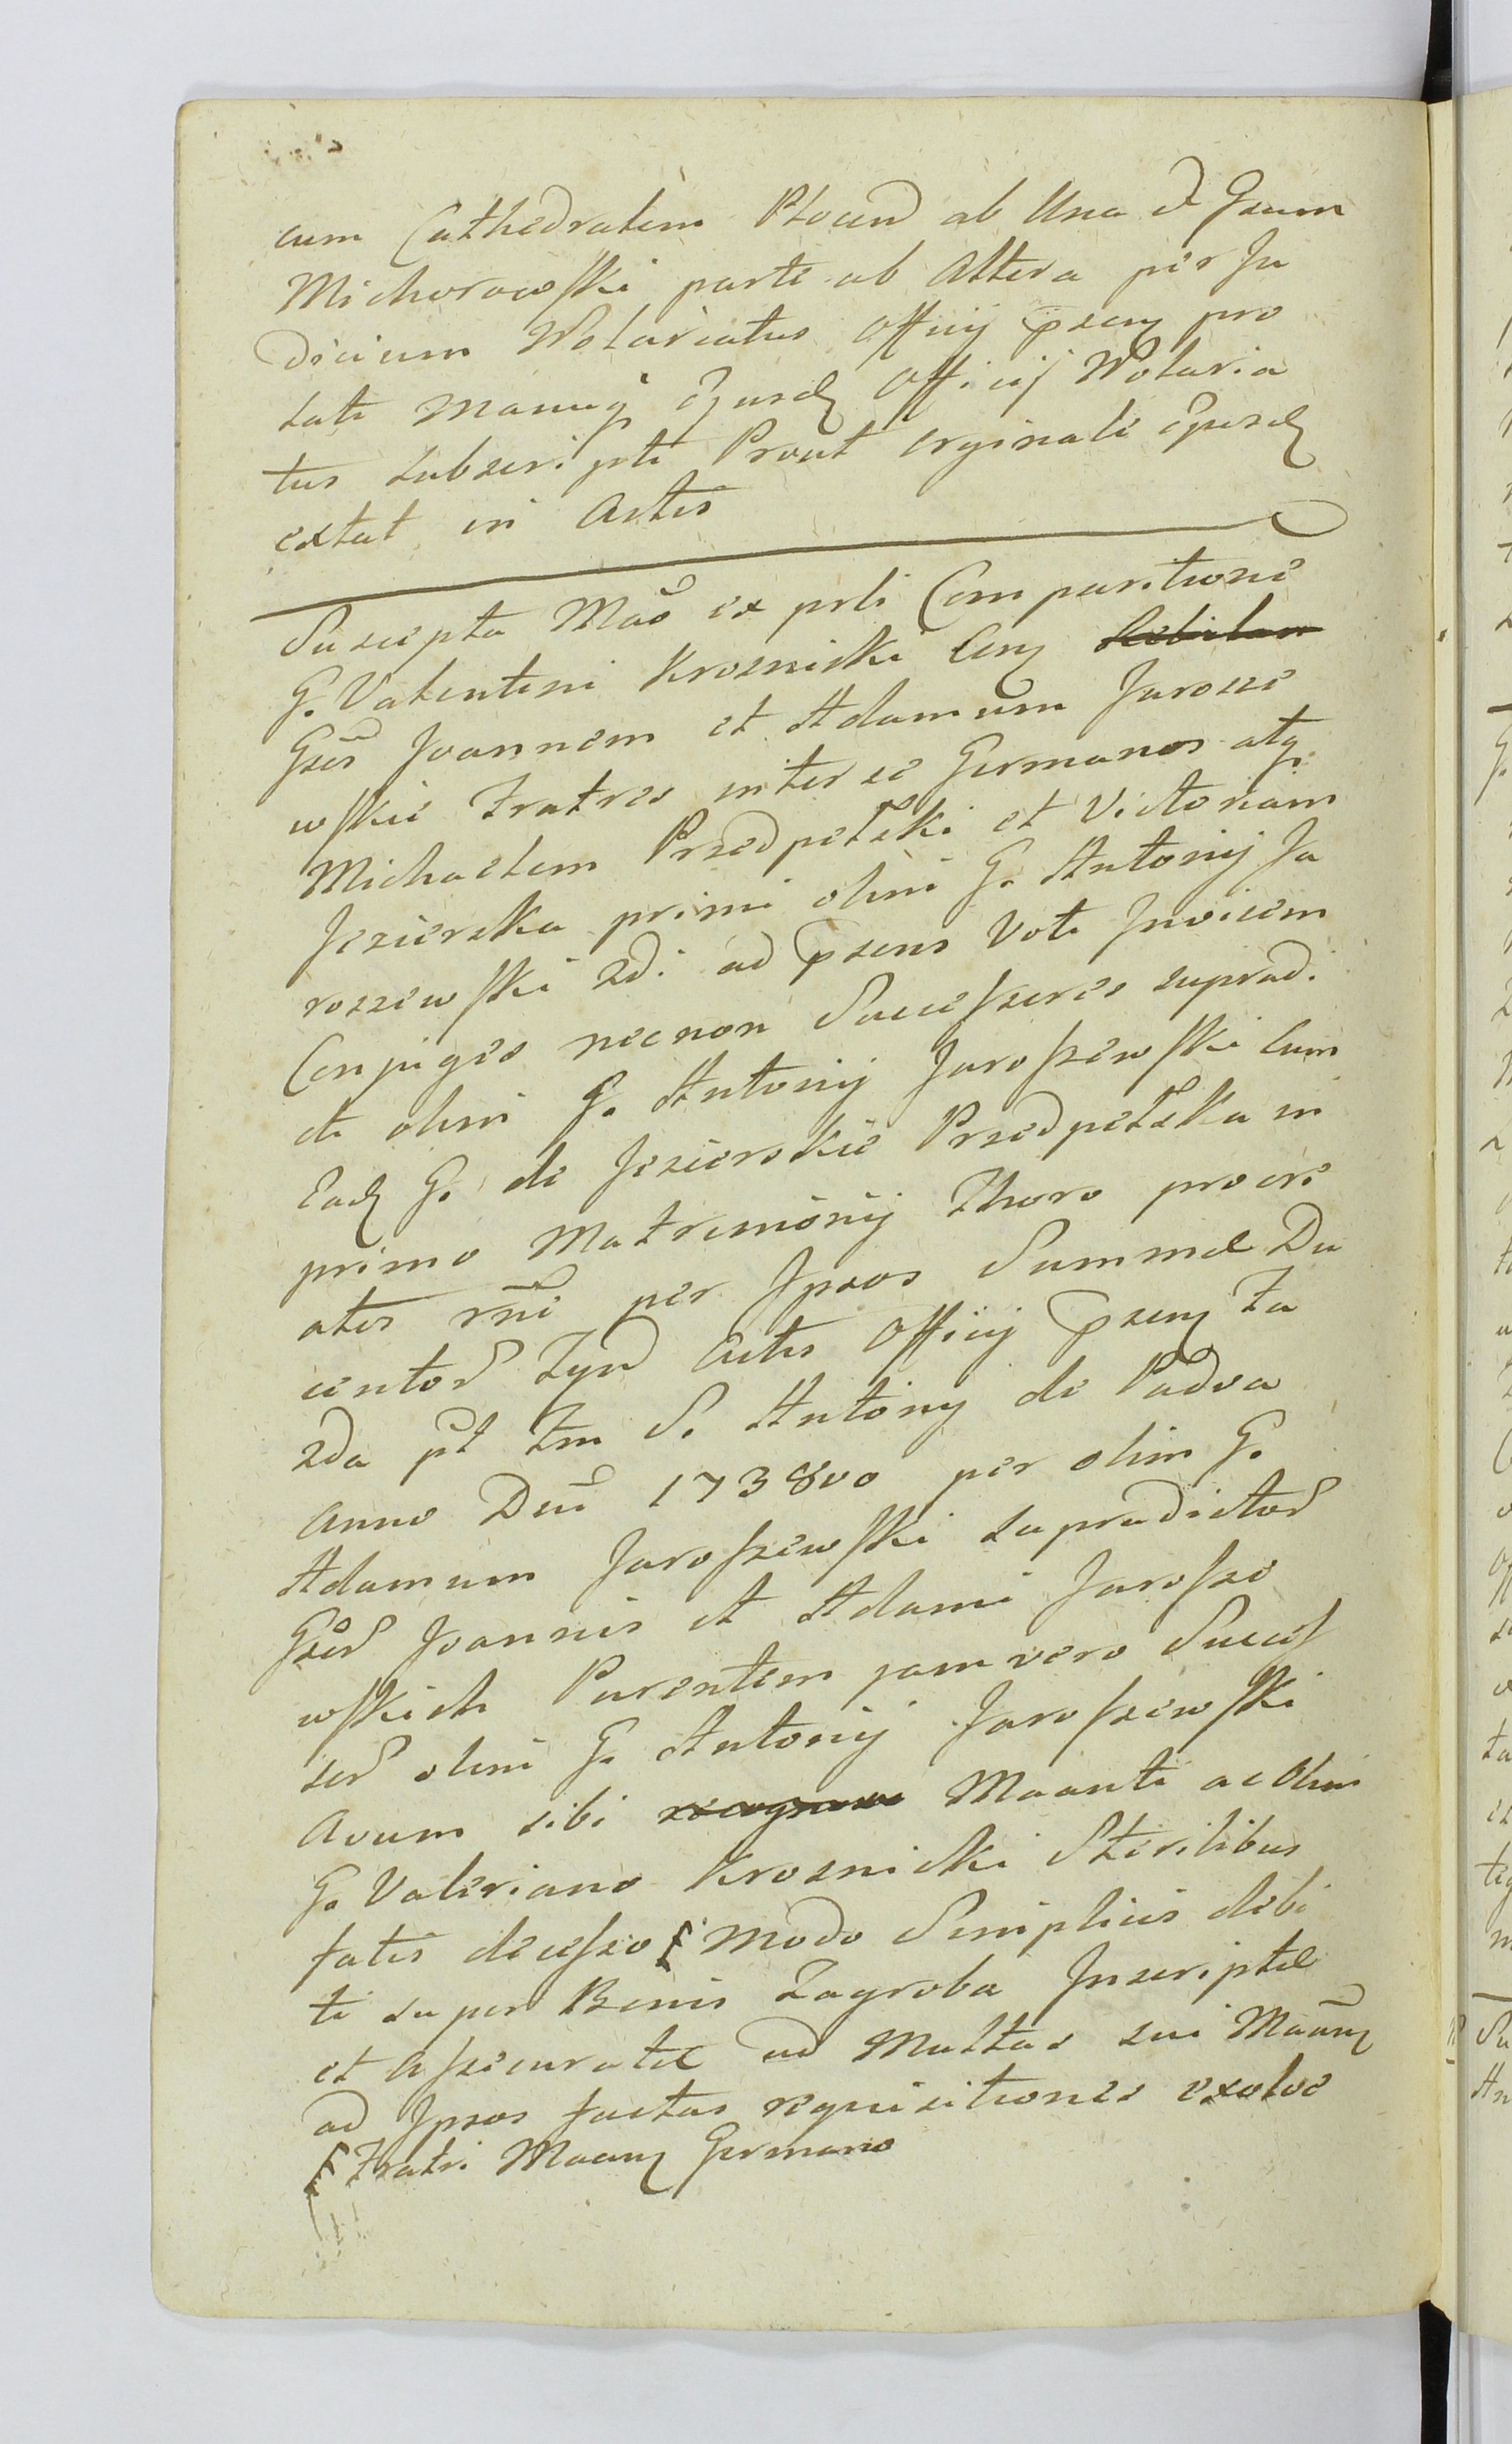 cum Cathedralem Plocen ab Una et Gsum
Michorowski parte ab Altera per Ju
dicium Notariatus Officij psen pro
lati Manuq Ejusd Officij Notaria
tus subscripti Prout orginale Ejusd
extat in Actis
Suscepta Mão ex prli Comparitione
G. Valentini Krosnicki Cen Debitam
Gsēs Joannem et Adamum Jarosze
wskie Fratres inter se Germanos atq
Michaelem Przedpełski et Victoriam
Jezierska primi olim G. Antonij Ja
roszewski 2di ad psens Voti Invicem
Conjuges necnon Successores supradi
cti olim G. Antonij Jaroszewski cum
Ead G. de Jezierskie Przedpełska in
primo Matrimonij Thoro procre
atos rñe per Ipsos Summæ Du
centor Tynf Actis Officij psen Fa
2da pt Fm S. Antony de Padua
Anno Dni 1738vo per olim G.
Adamum Jaroszewski supradictor
Gsor Joannis et Adami Jarosze
wskich Parentem jam vero Succes
sor olim G. Antonij Jaroszewski
Avum sibi Maanti ac Olim
G. Valeriano Krosnicki Sterilibus
fatis decesso Modo Simplicis debi
ti super Bonis Zagroba Inscriptæ
et Assecuratæ ad Multas sui Maan
ad Ipsos factas requisitiones exolve
Fratri Maan Germano